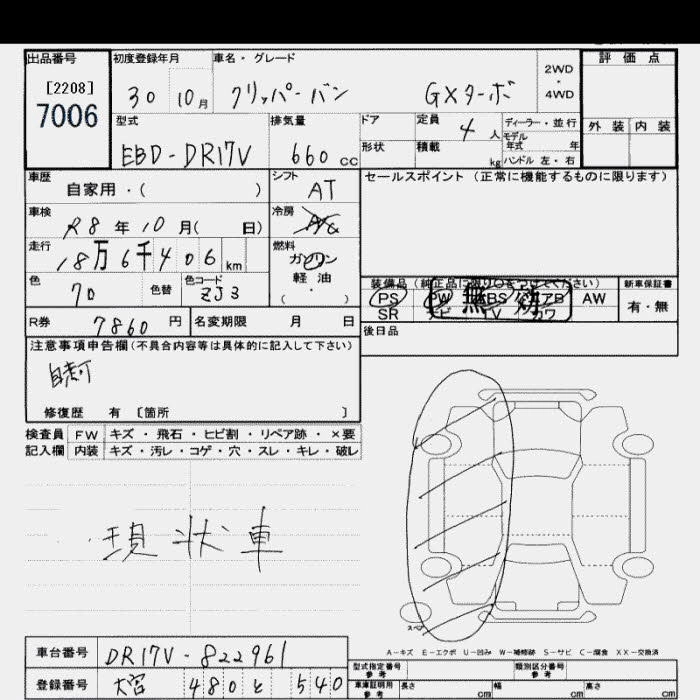 出品番号
[2208]
7006
初度登録年月
30 10月
車名・グレード
クリッパーバン GXターボ
2WD
・
4WD
評価点
外装 内装
型式
EBD-DR17V
排気量
660cc
ドア
形状
定員 4人
積載 kg
ディーラー・並行
モデル年式 年
ハンドル 左・右
車歴
自家用・( )
シフト
AT
セールスポイント(正常に機能するものに限ります)
車検
R8年10月( 日)
冷房
走行
18万6千406km
燃料
ガソリン
軽油
( ・ )
色
70
色替
色コード
ZJ3
装備品(純正品に限り○をつけてください)
PS PW ABS エアB AW
SR ナビ TV カワ
無効
新車保証書
有・無
R券
7860円
名変期限 月 日
後日品
注意事項申告欄(不具合内容等は具体的に記入して下さい)
自走可
修復歴 有 [箇所 ]
検査員記入欄
FW キズ・飛石・ヒビ割・リペア跡・×要
内装 キズ・汚レ・コゲ・穴・スレ・キレ・破レ
現状車
スペア
A-キズ E-エクボ U-凹み W-補修跡 S-サビ C-腐食 XX-交換済
車台番号
DR17V-822961
登録番号
大宮 480 と 540
型式指定番号
参考
類別区分番号
参考
車庫証明用
参考
長さ cm
幅 cm
高さ cm